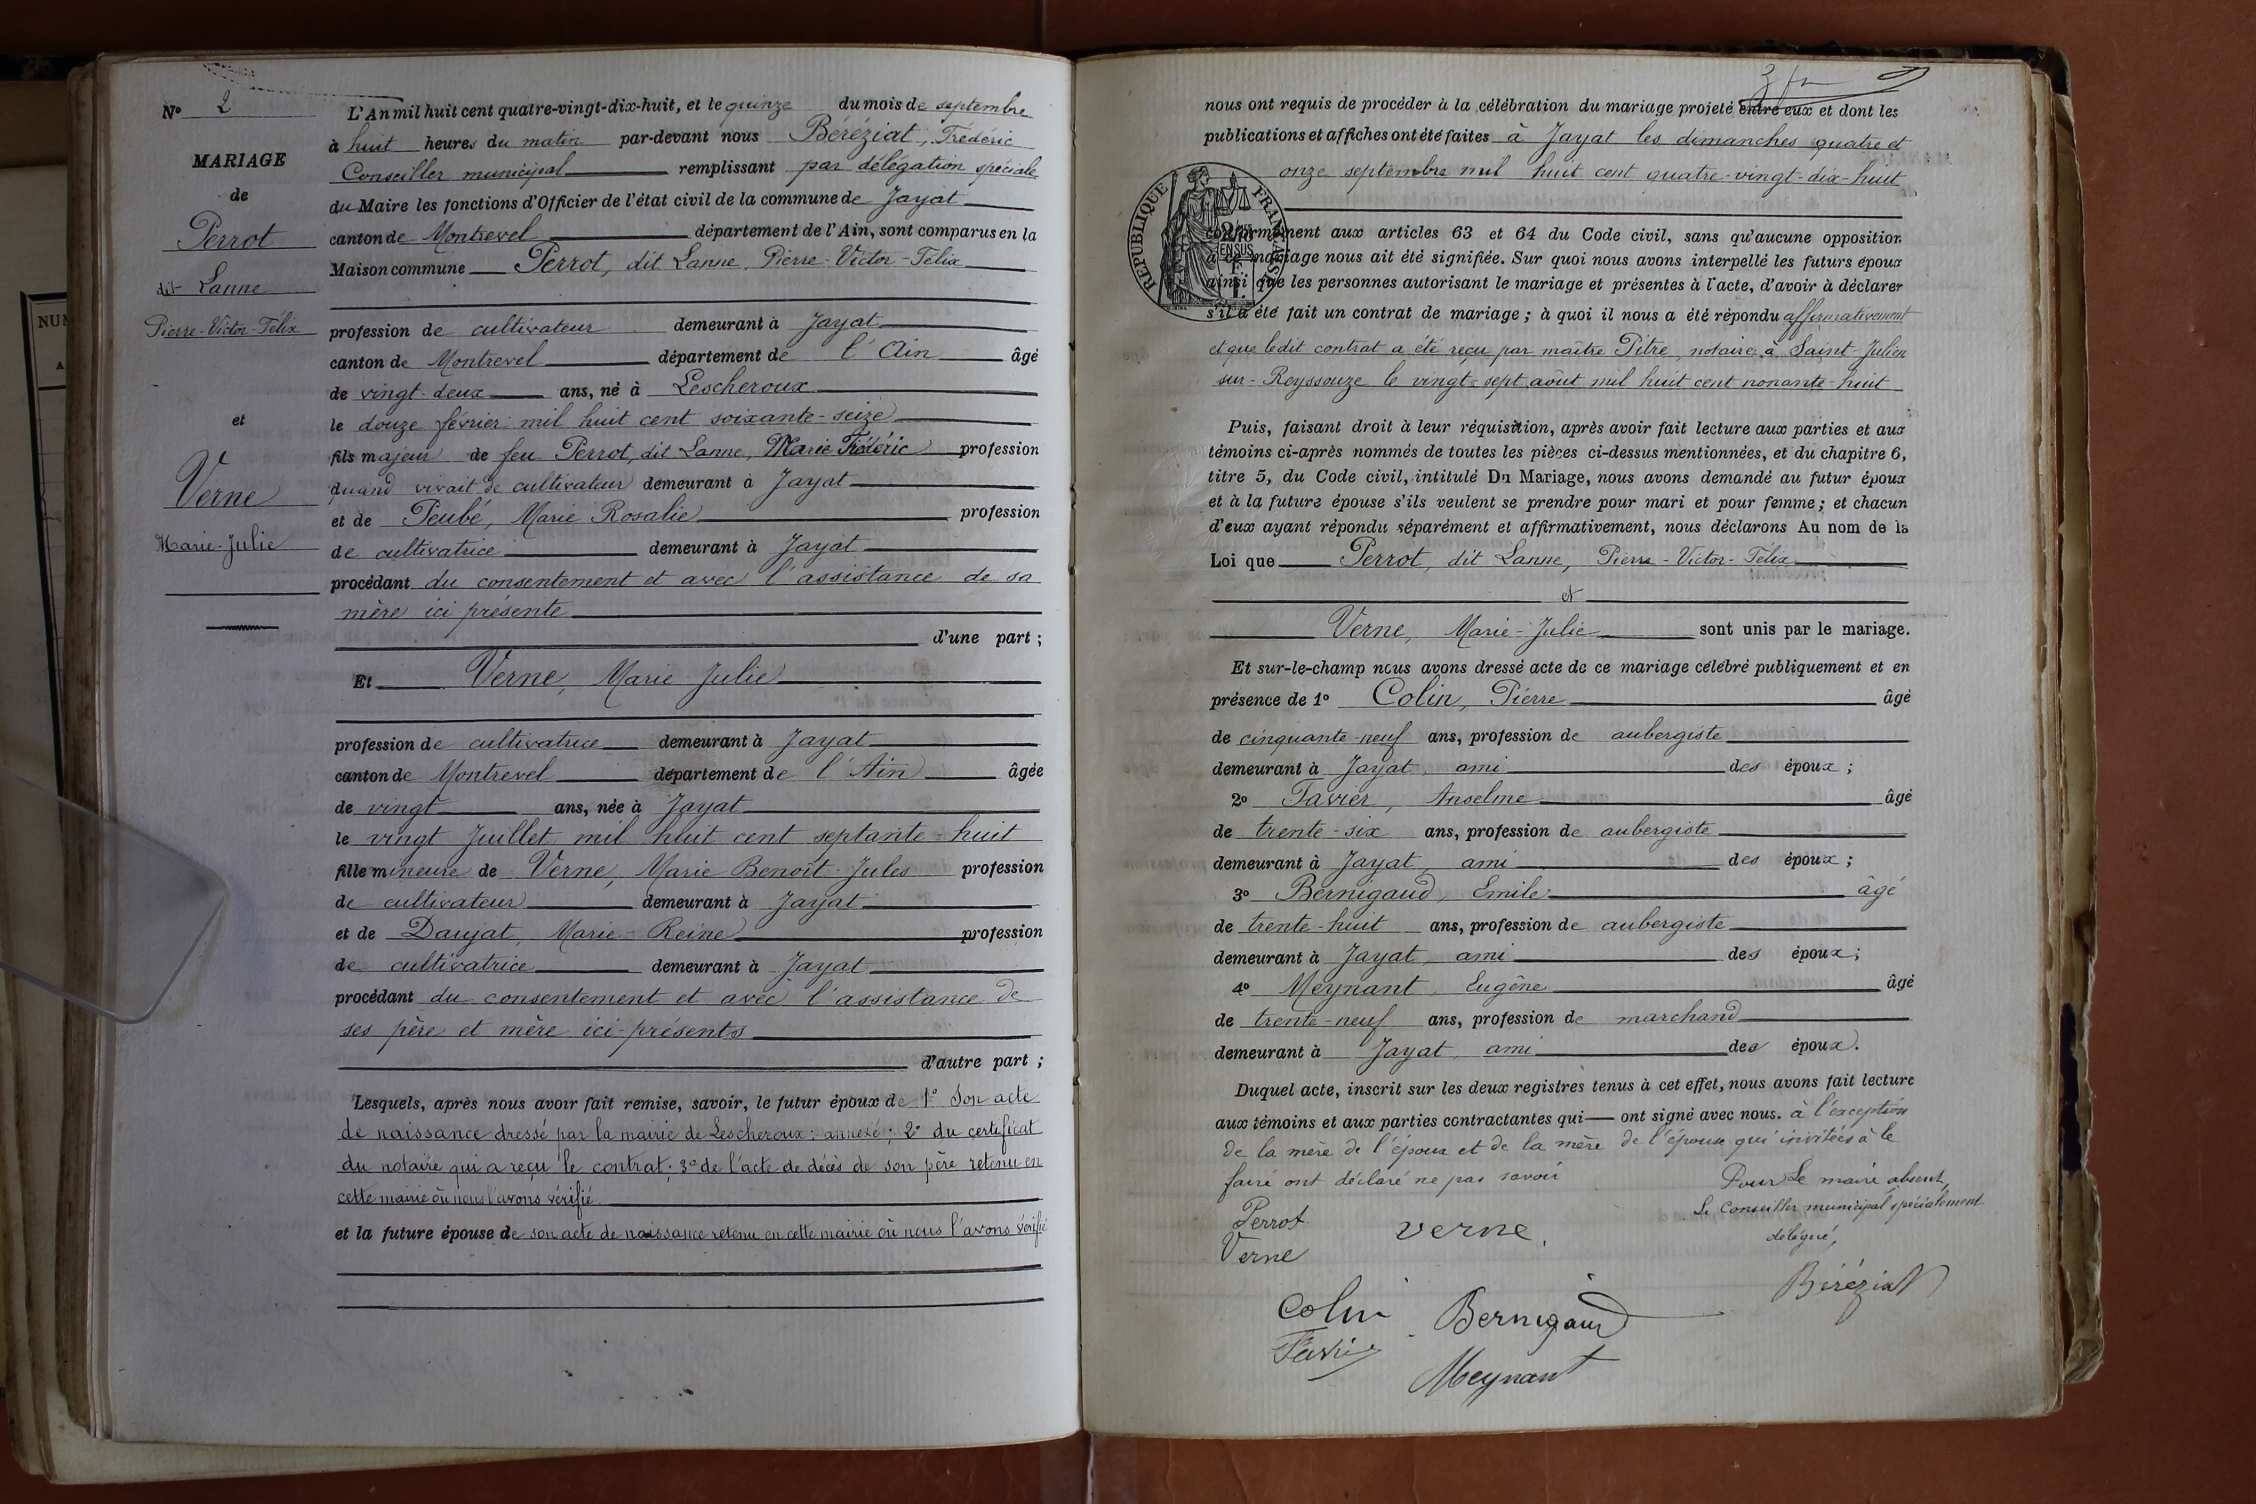 N° 2
MARIAGE
de
Perrot
dit Lanne
Pierre-Victor-Félix
et
Verne
Marie-Julie
L'An mil huit cent quatre-vingt-dix-huit, et le quinze du mois de septembre
à huit heures du matin par-devant nous Béréziat, Frédéric
Conseiller municipal remplissant par délégation spéciale
du Maire les fonctions d'Officier de l'état civil de la commune de Jayat
canton de Montrevel département de l'Ain, sont comparus en la
Maison commune Perrot, dit Lanne, Pierre-Victor-Félix
profession de cultivateur demeurant à Jayat
canton de Montrevel département de l'Ain âgé
de vingt-deux ans, né à Lescheroux
le douze février mil huit cent soixante-seize
fils majeur de feu Perrot, dit Lanne, Marie Frédéric profession
quand vivait de cultivateur demeurant à Jayat
et de Peubé, Marie Rosalie profession
de cultivatrice demeurant à Jayat
procédant du consentement et avec l'assistance de sa
mère ici présente
d'une part ;
Et Verne, Marie Julie
profession de cultivatrice demeurant à Jayat
canton de Montrevel département de l'Ain âgée
de vingt ans, née à Jayat
le vingt Juillet mil huit cent septante-huit
fille mineure de Verne, Marie Benoît-Jules profession
de cultivateur demeurant à Jayat
et de Daujat, Marie-Reine profession
de cultivatrice demeurant à Jayat
procédant du consentement et avec l'assistance de
ses père et mère ici-présents
d'autre part ;
Lesquels, après nous avoir fait remise, savoir, le futur époux de 1° Son acte
de naissance dressé par la mairie de Lescheroux : annexé ; 2° du certificat
du notaire qui a reçu le contrat ; 3° de l'acte de décès de son père retenu en
cette mairie où nous l'avons vérifié
et la future épouse de son acte de naissance retenu en cette mairie où nous l'avons vérifié
nous ont requis de procéder à la célébration du mariage projeté entre eux et dont les
publications et affiches ont été faites à Jayat les dimanches quatre et
onze septembre mil huit cent quatre-vingt-dix-huit
RÉPUBLIQUE FRANÇAISE
conformément aux articles 63 et 64 du Code civil, sans qu'aucune opposition
à ce mariage nous ait été signifiée. Sur quoi nous avons interpellé les futurs époux
ainsi que les personnes autorisant le mariage et présentes à l'acte, d'avoir à déclarer
s'il a été fait un contrat de mariage ; à quoi il nous a été répondu affirmativement
et que ledit contrat a été reçu par maître Pitre, notaire à Saint-Julien
sur-Reyssouze le vingt-sept août mil huit cent nonante-huit
Puis, faisant droit à leur réquisition, après avoir fait lecture aux parties et aux
témoins ci-après nommés de toutes les pièces ci-dessus mentionnées, et du chapitre 6,
titre 5, du Code civil, intitulé Du Mariage, nous avons demandé au futur époux
et à la future épouse s'ils veulent se prendre pour mari et pour femme ; et chacun
d'eux ayant répondu séparément et affirmativement, nous déclarons Au nom de la
Loi que Perrot, dit Lanne, Pierre-Victor-Félix
et
Verne, Marie-Julie sont unis par le mariage.
Et sur-le-champ nous avons dressé acte de ce mariage célébré publiquement et en
présence de 1° Colin, Pierre âgé
de cinquante-neuf ans, profession de aubergiste
demeurant à Jayat, ami des époux ;
2° Favier, Anselme âgé
de trente-six ans, profession de aubergiste
demeurant à Jayat, ami des époux ;
3° Bernigaud, Emile âgé
de trente-huit ans, profession de aubergiste
demeurant à Jayat, ami des époux ;
4° Meynant, Eugène âgé
de trente-neuf ans, profession de marchand
demeurant à Jayat, ami des époux.
Duquel acte, inscrit sur les deux registres tenus à cet effet, nous avons fait lecture
aux témoins et aux parties contractantes qui ont signé avec nous. à l'exception
de la mère de l'époux et de la mère de l'épouse qui invitées à le
faire ont déclaré ne pas savoir
Pour Le maire absent,
Le Conseiller municipal spécialement
délégué,
Perrot
Verne
verne.
Béréziat
Colin
Bernigaud
Favier
Meynant